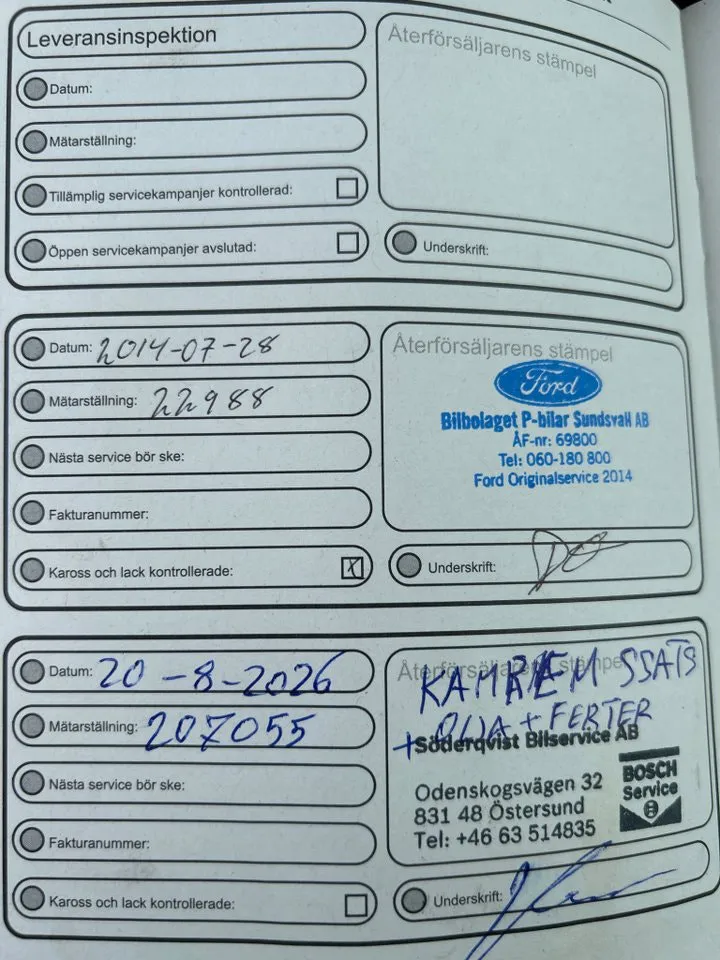 Leveransinspektion
Återförsäljarens stämpel
Datum:
Mätarställning:
Tillämplig servicekampanjer kontrollerad:
Öppen servicekampanjer avslutad:
Underskrift:
Datum: 2014-07-28
Återförsäljarens stämpel
Ford
Mätarställning: 22988
Bilbolaget P-bilar Sundsvall AB
ÅF-nr: 69800
Tel: 060-180 800
Ford Originalservice 2014
Nästa service bör ske:
Fakturanummer:
Kaross och lack kontrollerade: X
Underskrift:
Datum: 20-8-2026
Återförsäljarens stämpel
KAMREM SSATS
Mätarställning: 207055
+ OLJA + FERTER
Söderqvist Bilservice AB
BOSCH
Service
Nästa service bör ske:
Odenskogsvägen 32
831 48 Östersund
Tel: +46 63 514835
Fakturanummer:
Kaross och lack kontrollerade:
Underskrift: